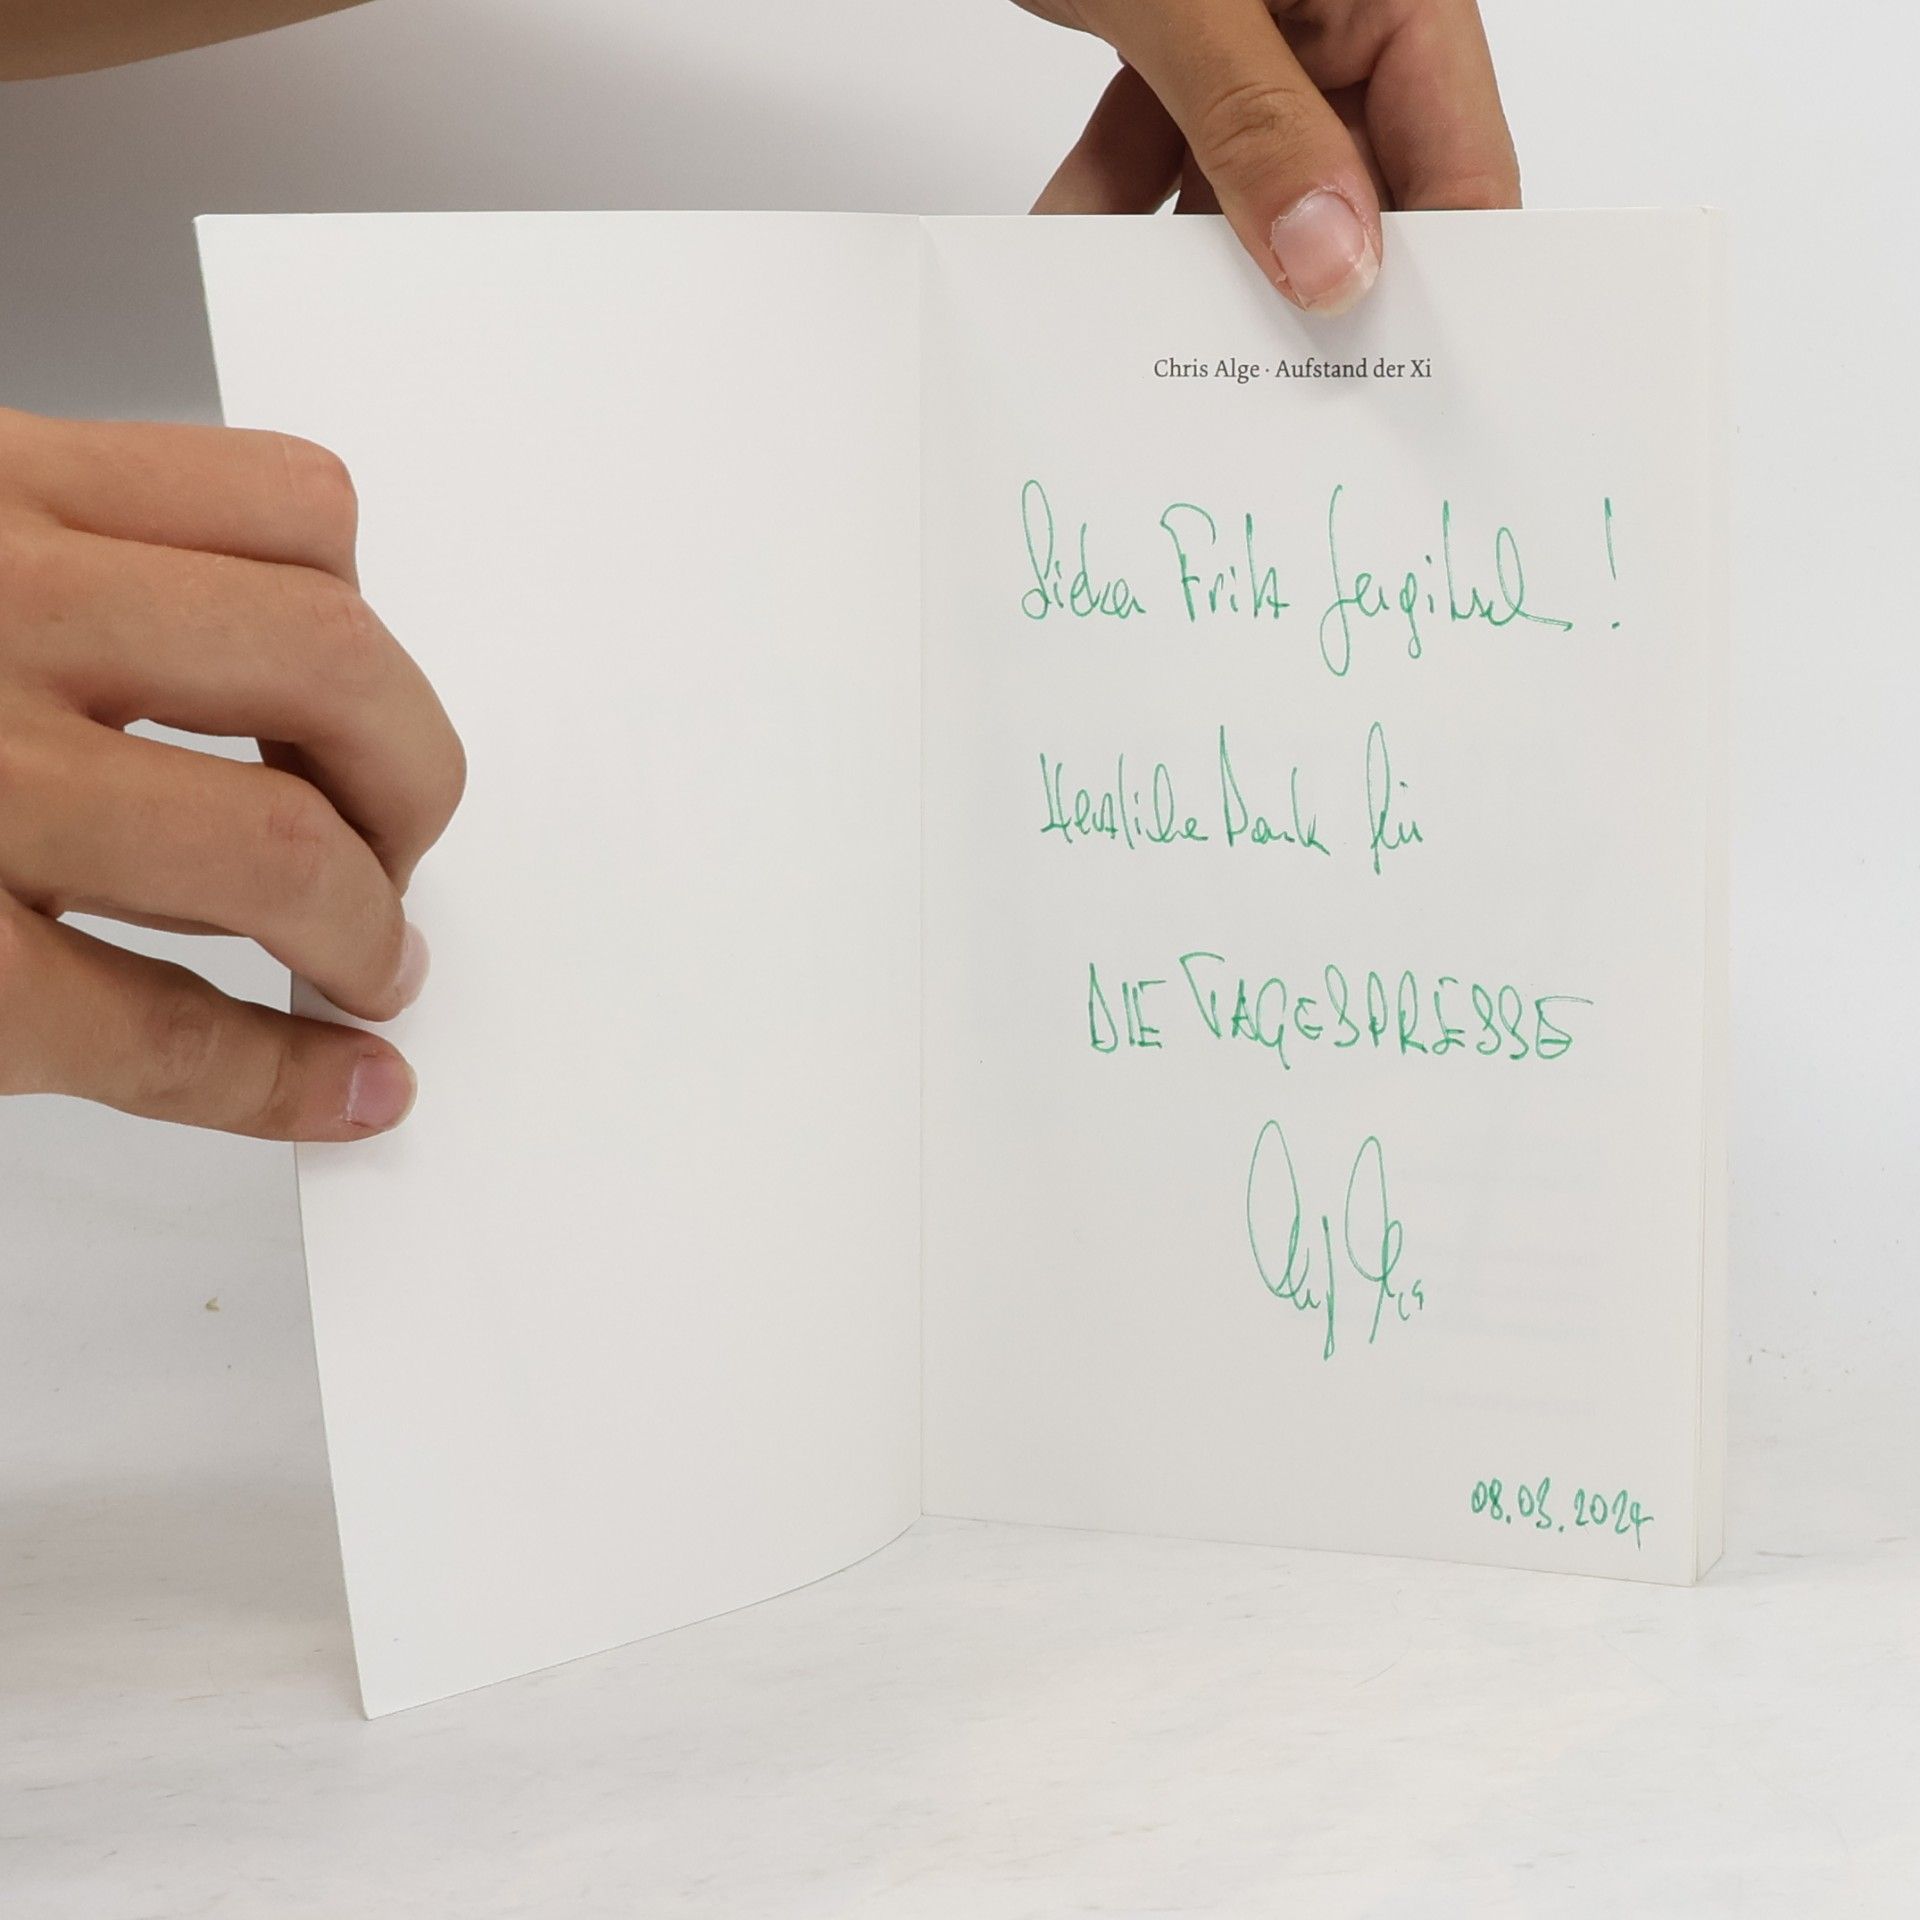 Chris Alge · Aufstand der Xi
Lieber Fritz !
Herzliche Dank für
DIE TAGESPRESSE
08.03.2024